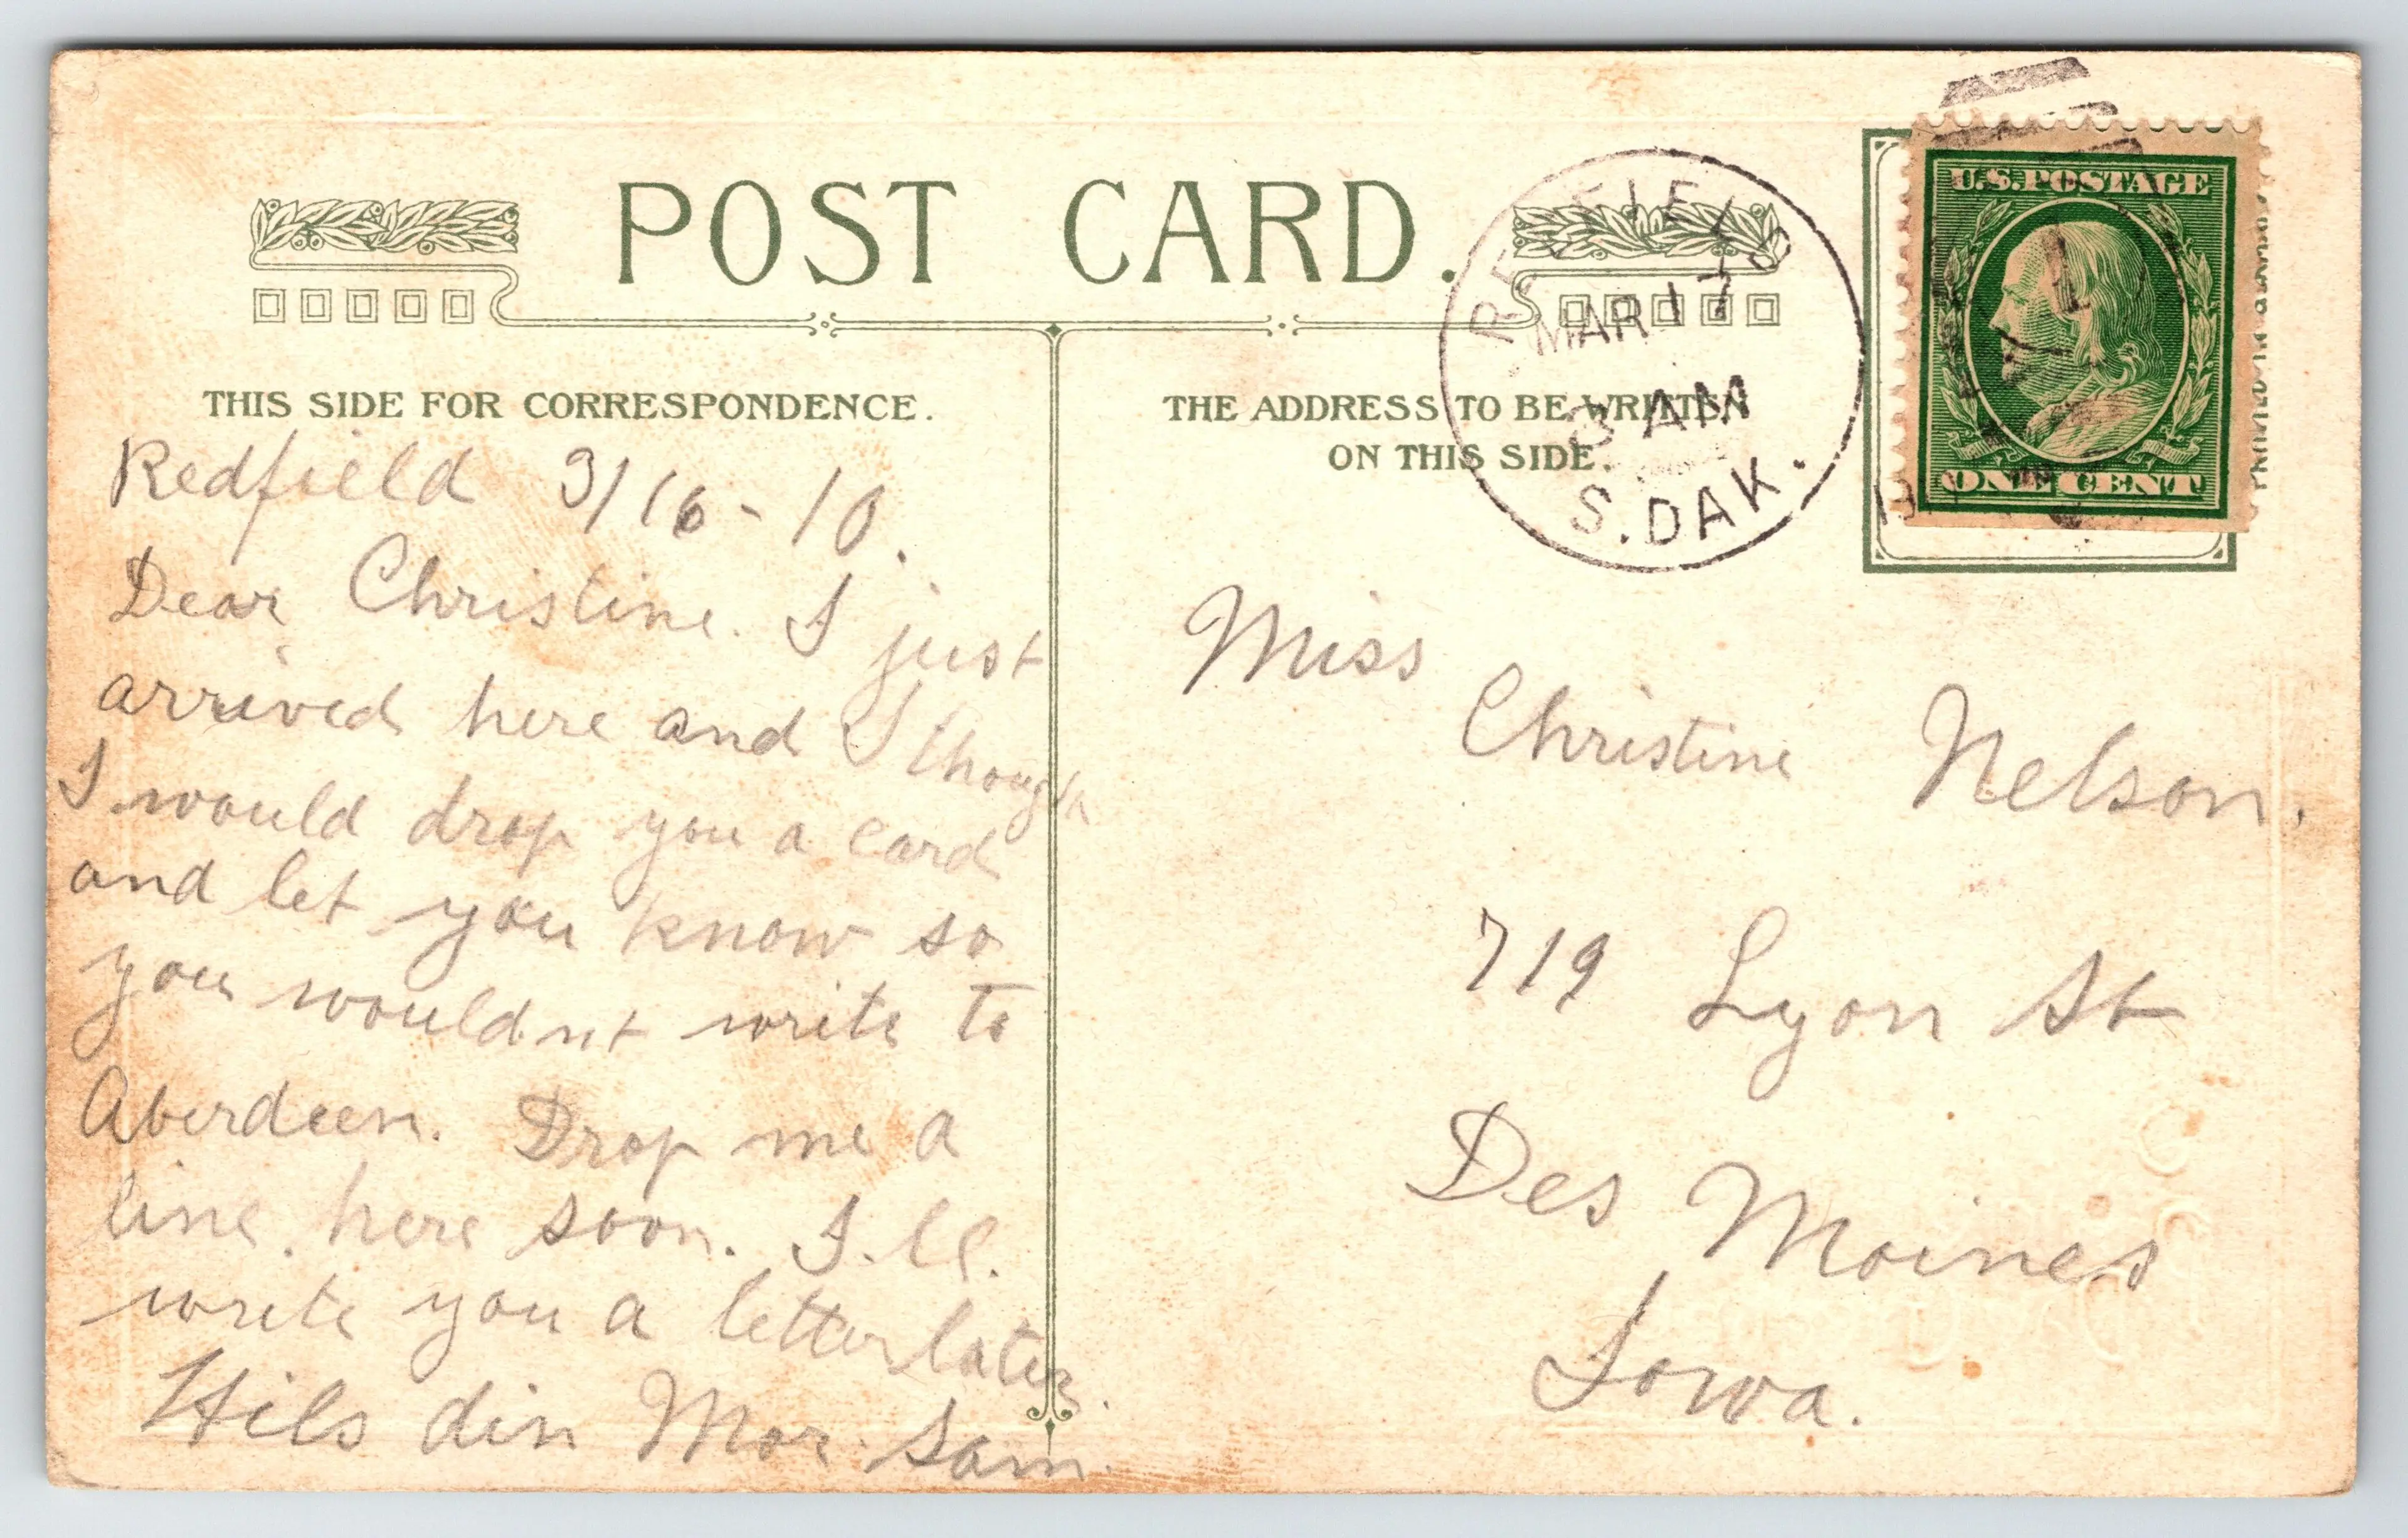 POST CARD.
THIS SIDE FOR CORRESPONDENCE.
Redfield 3/16-10.
Dear Christine. I just
arrived here and I though
I would drop you a card
and let you know so
you wouldnt write to
Aberdeen. Drop me a
line here soon. I.ll.
write you a letter later.
Hils din Mor. Sam.
THE ADDRESS TO BE WRITTEN
ON THIS SIDE.
REDFIELD
MAR 17
3 AM
S. DAK.
U.S. POSTAGE
ONE CENT
PRINTED IN GERMANY
Miss
Christine Nelson.
719 Lyon St
Des Moines
Iowa.